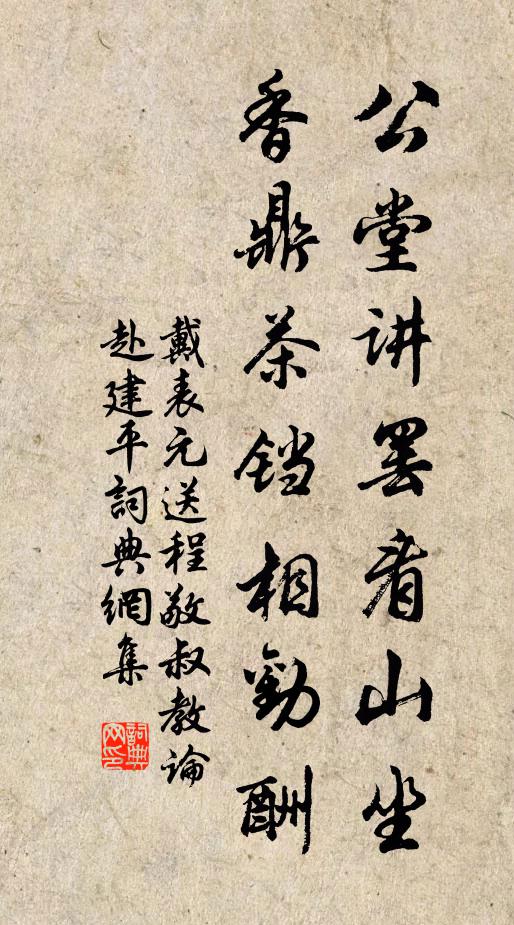 公堂讲罢看山坐
香鼎茶铛相勸酬
戴表元送程敬叔教論
赴建平詞典網集
詞典
网印